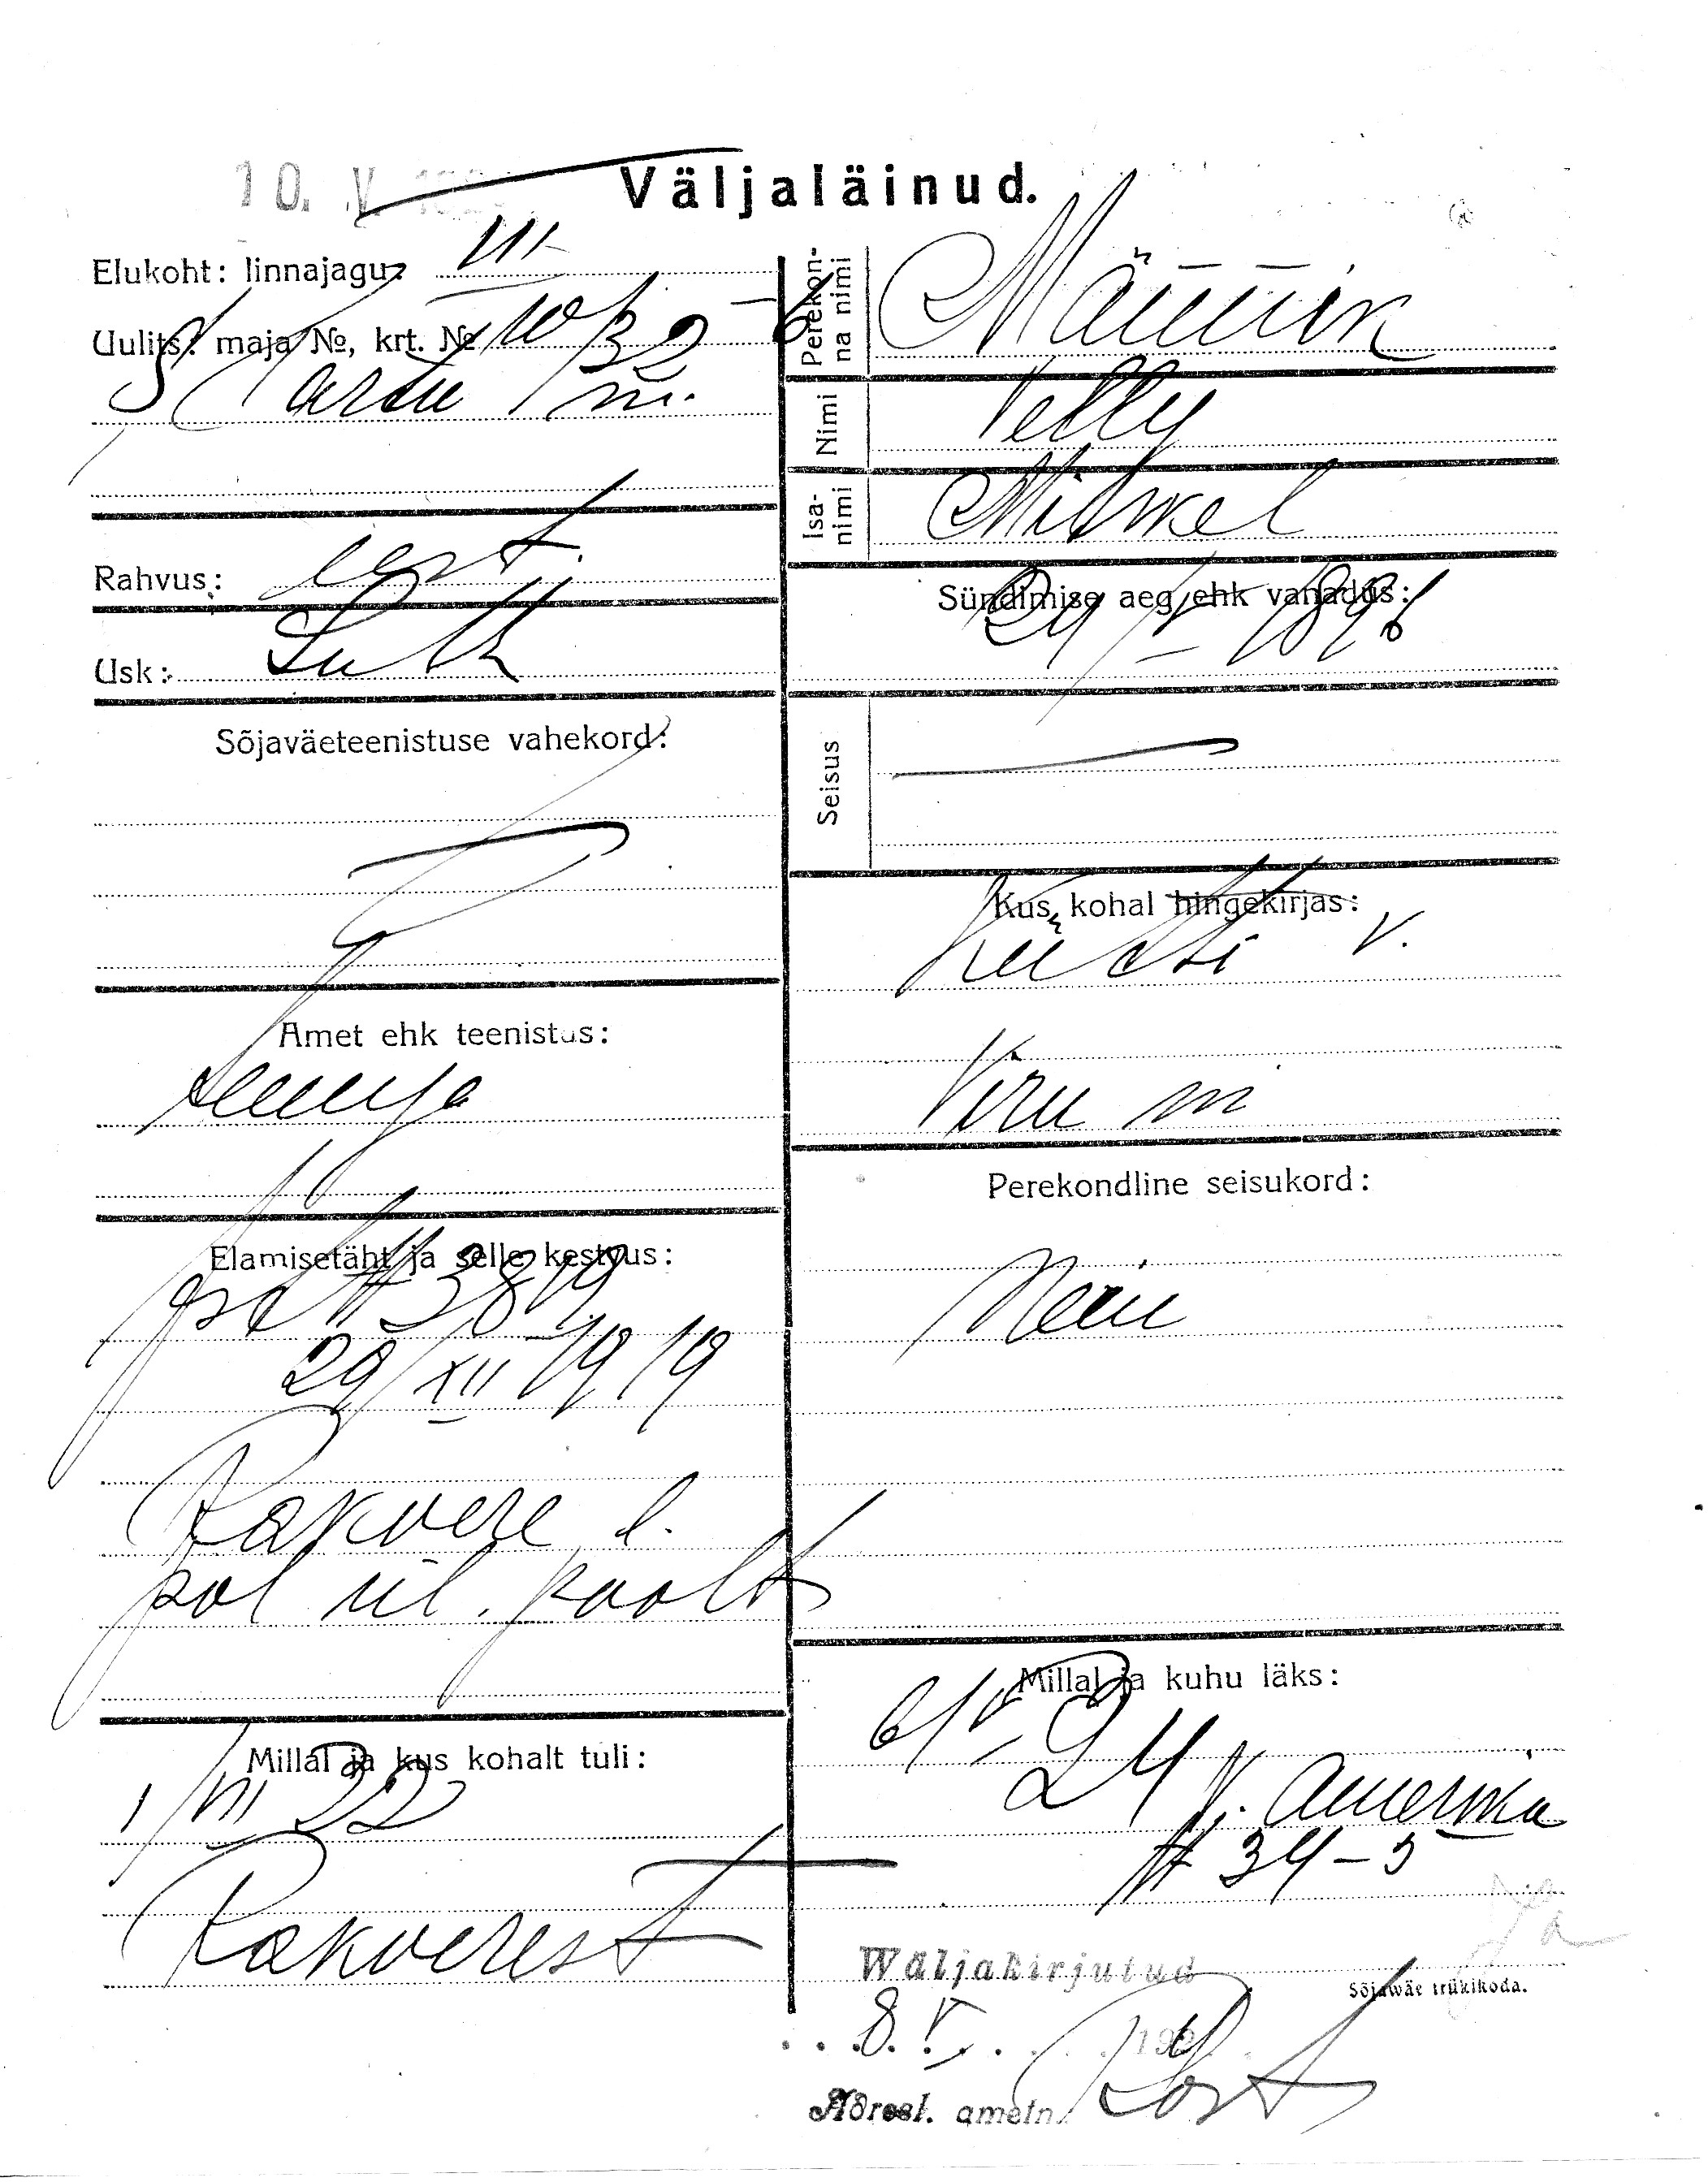 10. V
Väljaläinud.
Elukoht: linnajagu:
III
Uulits: maja №, krt. №
10/32 - 6
S. Tartu m.
Rahvus:
eest.
Usk:
Luth
Sõjaväeteenistuse vahekord:
Amet ehk teenistus:
Elamisetäht ja selle kestvus:
№ 3819
29/XII 1919
Rakvere l.
pol ül. poolt
Millal ja kus kohalt tuli:
1/VII 22
Rakverest
Perekonna nimi
Männik
Nimi
Isanimi
Mihkel
Sündimise aeg ehk vanadus:
24/V - 1898
Seisus
Kus kohal hingekirjas:
v.
Viru m
Perekondline seisukord:
Neiu
Millal ja kuhu läks:
6/V - 24
Amerika
№ 34-5
Wäljakirjutud
8. V. 192
Adressl. ametn.
Sõjawäe trükikoda.